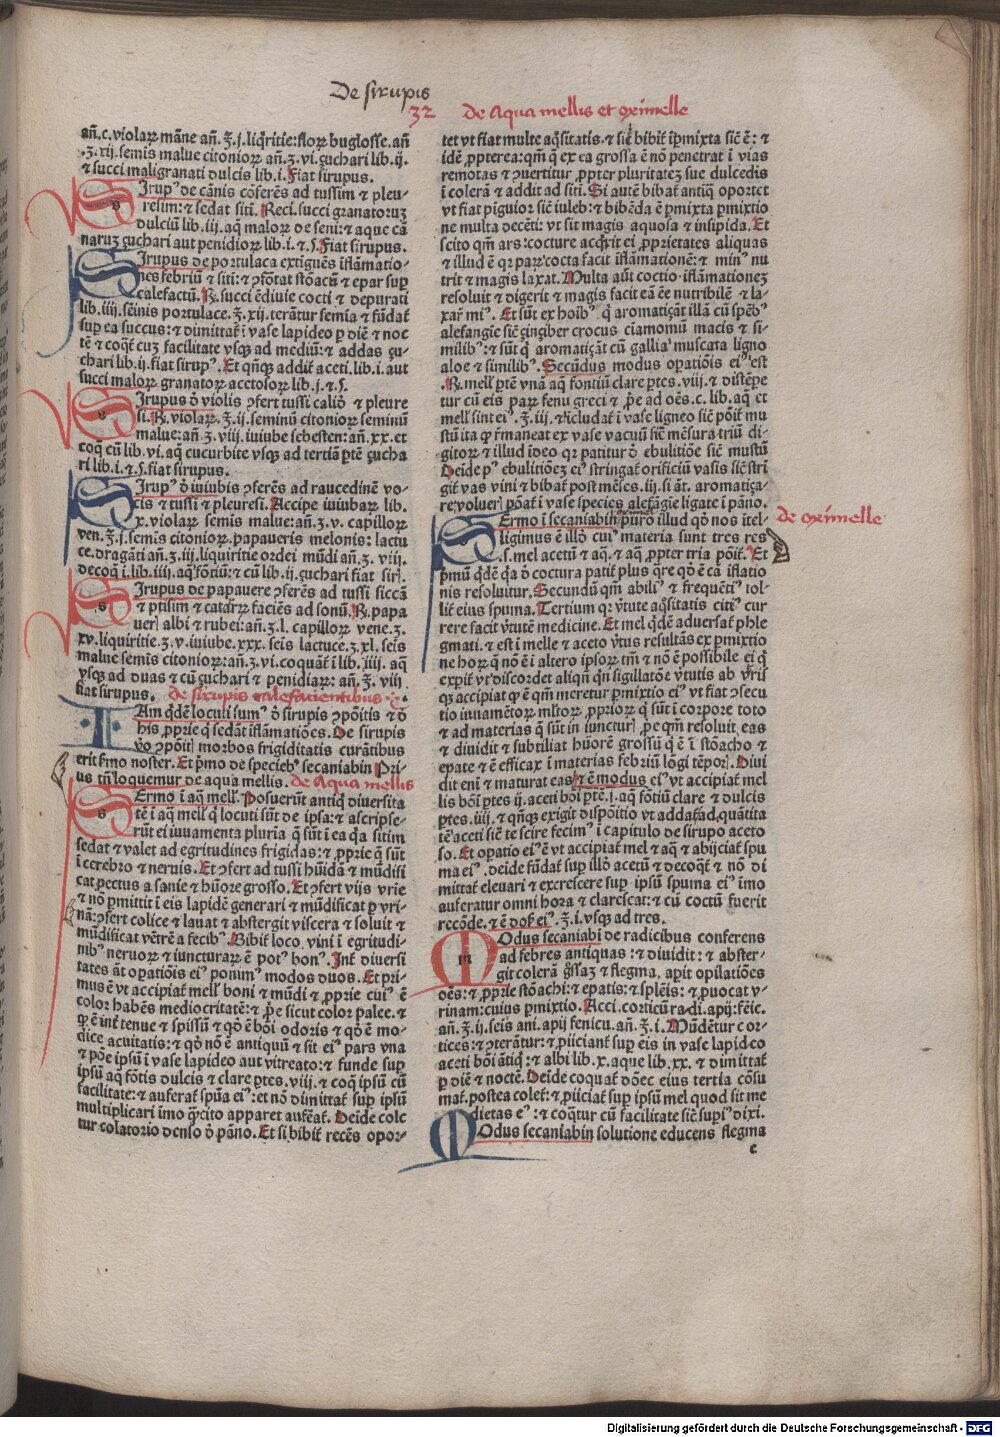 De sirupis
32 de Aqua mellis et oximelle
añ.c.violaꝝ mãne añ.ʒ.j.liq̃ritie:floꝝ buglosse.añ
.ʒ.xij.semis malue citonioꝝ añ.ʒ.vi.çuchari lib.ij.
⁊ succi maligranati dulcis lib.i.Fiat sirupus.
SIrupꝰ de cãnis cõferẽs ad tussim ⁊ pleu-
resim:⁊ sedat sitĩ. Reci.succi granatoruʒ
dulciũ lib.iij.aq̃ maloꝝ de seni:⁊ aque cã
naruʒ çuchari aut penidioꝝ lib.i.⁊.s.Fiat sirupus.
SIrupus de portulaca extiguẽs ĩflãmatio-
nes febriũ ⁊ siti:⁊ ↄfõtat stõacũ ⁊ epar suꝑ
calefactũ.℞.succi ẽdiuie cocti ⁊ depurati
lib.iiij.sẽinis portulace.ʒ.xij.terãtur semia ⁊ fũdat̃
suꝑ ea succus:⁊ dimittat̃ ĩ vase lapideo ꝑ diẽ ⁊ noc
tẽ ⁊ coq̃t̃ cuʒ facilitate vsqꝫ ad mediũ:⁊ addas çu-
chari lib.ij.fiat sirupꝰ. Et qñqꝫ addit̃ aceti.lib.i.aut
succi maloꝝ granatoꝝ acetosoꝝ lib.j.⁊.s.
SIrupus õ violis ↄfert tussi calið ⁊ pleure
si.℞.violaꝝ.ʒ.ij.seminũ citonioꝝ seminũ
malue:añ.ʒ.viij.iuiube sebesten:añ.xx.et
coq̃ cũ lib.vi.aq̃ cucurbite vsqꝫ ad tertiã ꝑtẽ çucha
ri lib.i.⁊.s.fiat sirupus.
SIrupꝰ õ iuiubis ↄferẽs ad raucedinẽ vo-
cis ⁊ tussi ⁊ pleuresi.Accipe iuiubaꝝ lib.
x.violaꝝ semis malue:añ.ʒ.v.capilloꝝ
ven.ʒ.j.semis citonioꝝ.papaueris melonis:lactu
ce.dragãti añ.ʒ.iij.liquiritie ordei mũdi añ.ʒ.vij.
decoq̃ ĩ.lib.iiij.aq̃ fõtiũ:⁊ cũ lib.ij.çuchari fiat sir̃.
SIrupus de papauere ↄferẽs ad tussi siccã
⁊ ptisim ⁊ catarꝝ faciẽs ad sonũ.℞.papa
uer̃ albi ⁊ rubei:añ.ʒ.l.capilloꝝ vene.ʒ.
xv.liquiritie.ʒ.v.iuiube.xxx.seis lactuce.ʒ.xl.seis
malue semis citonioꝝ:añ.ʒ.vi.coquãt̃ ĩ lib.iiij.aq̃
vsqꝫ ad duas ⁊ cũ çuchari ⁊ penidiaꝝ:añ.ʒ.viij
fiat sirupus. de sirupis calefacientibus
IAm q̃dẽ locuti sumꝰ õ sirupis ↄpõitis ⁊ õ
his ꝓprie q̃ sedãt ĩflãmatiões.De sirupis
ṽo ↄpõit̃ morbos frigiditatis curãtibus
erit ẜmo noster.Et pͥmo de speciebꝰ secaniabin Pri-
us tñ loquemur de aqua mellis. de Aqua mellis
SErmo ĩ aq̃ mell̃.Posuerũt antiq̃ diuersita
tẽ ĩ aq̃ mell̃ q̃ locuti sũt de ipsa:⁊ ascripse-
rũt ei iuuamenta pluria q̃ sũt ĩ ea q̃a sitim
sedat ⁊ valet ad egritudines frigidas:⁊ ꝓprie q̃ sũt
ĩ cerebro ⁊ neruis.Et ↄfert ad tussi hũidã ⁊ mũdifi
cat pectus a sanie ⁊ hũore grosso.Et ↄfert vijs vrie
⁊ nõ ꝑmittit ĩ eis lapidẽ generari ⁊ mũdificat ꝑ vri-
nã:ↄfert colice ⁊ lauat ⁊ abstergit viscera ⁊ soluit ⁊
mũdificat vẽtrẽ a fecibꝰ.Bibit̃ loco vini ĩ egritudi-
nibꝰ neruoꝝ ⁊ iuncturaꝝ ẽ potꝰ bonꝰ.Int̃ diuersi
tates ãt oꝑatiõis eiꝰ ponimꝰ modos duos.Et pri-
mus ẽ vt accipiat̃ mell̃ boni ⁊ mũdi ⁊ ꝓprie cuiꝰ ẽ
color habẽs mediocritatẽ:⁊ ꝓpͥe sicut color palee.⁊
qꝫ ẽ int̃ tenue ⁊ spissũ ⁊ qõ ẽ bõi odoris ⁊ qõ ẽ mo-
dice acuitatis:⁊ qõ nõ ẽ antiquũ ⁊ sit eiꝰ pars vna
⁊ põe ipsũ ĩ vase lapideo aut vitreato:⁊ funde suꝑ
ipsũ aq̃ fõtis dulcis ⁊ clare ꝑtes.viij.⁊ coq̃ ipsũ cũ
facilitate:⁊ auferat̃ spũa eiꝰ:et nõ dimittat̃ suꝑ ipsũ
multiplicari imo q̃cito apparet aufẽat̃.Deide colc
tur colatorio denso õ pãno.Et si bibit̃ recẽs opor-
tet vt fiat multe aq̃sitatis.⁊ siẽ bibit̃ ĩꝑmixta siẽ ẽ:⁊
idẽ ꝓpterea:qm̃ q̃ ex ea grossa ẽ nõ penetrat ĩ vias
remotas ⁊ ↄuertitur ꝓpter pluritateʒ sue dulcedis
ĩ colerã ⁊ addit ad siti.Si autẽ bibat̃ antiq̃ oportet
vt fiat piguior siẽ iuleb:⁊ bibẽda ẽ ꝑmixta ꝑmixtio
ne multa decẽti:vt sit magis aquosa ⁊ insipida.Et
scito qm̃ ars:cocture acq̃rit ei ꝓprietates aliquas
⁊ illud ẽ qꝛ parꝰ cocta facit ĩflãmationẽ:⁊ minꝰ nu
trit ⁊ magis laxat.Multa aũt coctio ĩflãmationeʒ
resoluit ⁊ digerit ⁊ magis facit eã ẽe nutribilẽ ⁊ la-
xat̃ miꝰ.Et sũt ex hoibꝰ q̃ aromatiçãt illã cũ spẽbꝰ
alefangie siẽ çinçiber crocus ciamomũ macis ⁊ si-
milibꝰ:⁊ sũt q̃ aromatiçãt cũ gallia muscata ligno
aloe ⁊ similibꝰ.Secũdus modus oꝑatiõis eiꝰ est
.℞.mell̃ ꝑtẽ vnã aq̃ fontiũ clare ꝑtes.viij.⁊ distẽpe
tur cũ eis parꝝ fenu greci ⁊ ꝓpe ad oẽs.c.lib.aq̃ et
mell̃ sint eiꝰ.ʒ.iij.⁊ ĩcludat̃ ĩ vase ligneo siẽ põit̃ mu
stũ ita qꝫ ẜmaneat ex vase vacuũ siẽ mẽsura triũ di-
gitoꝝ ⁊ illud ĩdeo qꝛ patitur õ ebulitiõe siẽ mustũ
Deide pꝰ ebulitiõeʒ eiꝰ stringat̃ orificiũ vasis siẽ strĩ
git̃ vas vini ⁊ bibat̃ post mẽses.iij.si ãt.aromatiça-
re:voluer̃ põat̃ ĩ vase species alefãgie ligate ĩ pãno.
SErmo ĩ secaniabin puro illud qõ nos itel- de oximelle
ligimus ẽ illõ cuiꝰ materia sunt tres res
.s.mel acetũ ⁊ aq̃.⁊ aq̃ ꝓpter tria põit̃.Et
pͥmũ q̃dẽ q̃a õ coctura patit̃ plus q̃re qõ ẽ cã ĩflatio
nis resoluitur.Secundũ qm̃ abiliꝰ ⁊ frequẽtiꝰ tol-
lit̃ eius spuma.Tertium qꝛ ṽtute aq̃sitatis citiꝰ cur
rere facit ṽtutẽ medicine.Et mel q̃dẽ aduersat̃ phle
gmati.⁊ est ĩ melle ⁊ aceto ṽtus resultãs ex ꝑmixtio
ne hoꝝ q̃ nõ ẽ ĩ altero ipsoꝝ tm̃ ⁊ nõ ẽ possibile ei q̃
exꝑit̃ vt discordet aliqñ q̃n sigillatõe ṽtutis ab vtris
qꝫ accipiat qꝫ ẽ qm̃ meretur ꝑmixtio eiꝰ vt fiat ↄsecu
tio iuuamẽtoꝝ ml̃toꝝ ꝓprioꝝ q̃ sũt ĩ corpore toto
⁊ ad materias q̃ sũt in iunctur̃ ꝓpe qm̃ resoluit eas
⁊ diuidit ⁊ subtiliat hũorẽ grossũ q̃ ẽ ĩ stõacho ⁊
epate ⁊ ẽ efficax ĩ materias febriũ lõgi tẽpor̃.Diui
dit eni ⁊ maturat eas:⁊ ẽ modus eiꝰ vt accipiat̃ mel
lis bõi ꝑtes ij.aceti bõi ꝑtẽ.j.aq̃ fõtiũ clare ⁊ dulcis
ꝑtes.iiij.⁊ qñqꝫ exigit dispõitio vt addat̃ ad quãtita
tẽ aceti siẽ te scire fecimꝰ ĩ capitulo de sirupo aceto
so.Et oꝑatio eiꝰ ẽ vt accipiat̃ mel ⁊ aq̃ ⁊ abijciat̃ spu
ma eiꝰ.deide fũdat̃ suꝑ illõ acetũ ⁊ decoq̃t̃ ⁊ nõ di
mittat̃ eleuari ⁊ excrescere suꝑ ipsũ spuma eiꝰ imo
auferatur omni hora ⁊ clarescat:⁊ cũ coctũ fuerit
recõde.⁊ ẽ doẜ eiꝰ.ʒ.i.vsqꝫ ad tres.
MOdus secaniabi de radicibus conferens
ad febres antiquas:⁊ diuidit:⁊ abster-
git colerã grossaʒ ⁊ flegma.apit opilatiões
oẽs:⁊ ꝓprie stõachi:⁊ epatis:⁊ splẽis:⁊ ꝓuocat v-
rinam:cuius ꝑmixtio.Acci.corticũ radi.apij:fẽic.
añ.ʒ.ij.seis ani.apij fenicu.añ.ʒ.i.Mũdẽtur cor-
tices:⁊ ↄterãtur:⁊ ꝓiiciant̃ suꝑ eis in vase lapideo
aceti bõi ãtiq̃:⁊ albi lib.x.aque lib.xx.⁊ dimittat̃
ꝑ diẽ ⁊ noctẽ.Deĩde coquat̃ dõec eius tertia cõsu
mat̃.postea colet̃:⁊ ꝓiiciat̃ suꝑ ipsũ mel quod sit me
dietas eꝰ:⁊ coq̃tur cũ facilitate siẽ supiꝰ dixi.
MOdus secaniabin solutione educens flegma
c
Digitalisierung gefördert durch die Deutsche Forschungsgemeinschaft - DFG